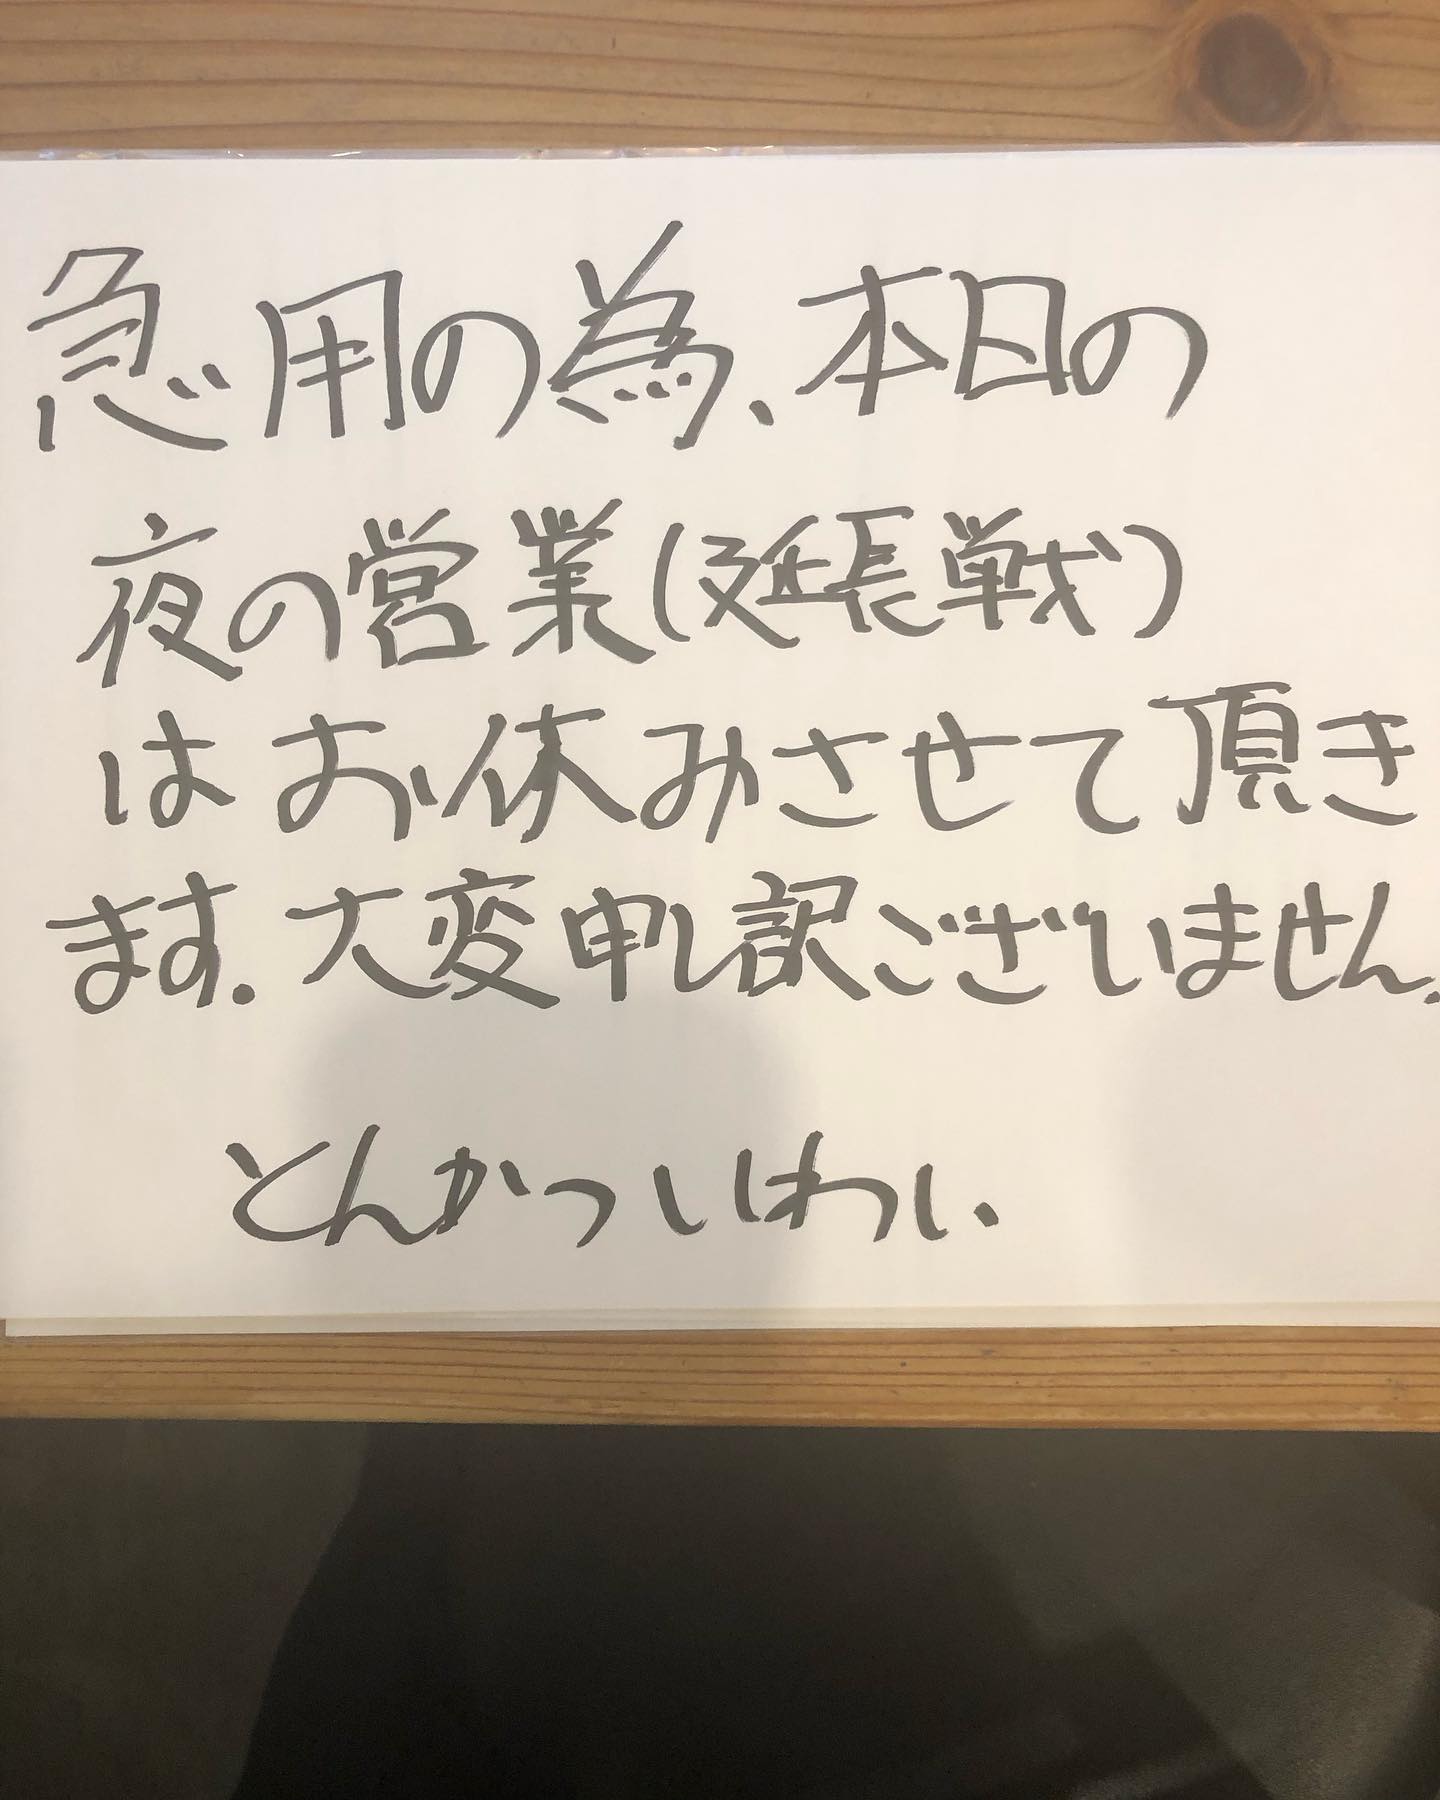 急用の為、本日の
夜の営業(延長戦)
はお休みさせて頂き
ます。大変申し訳ございません。
とんかついわい